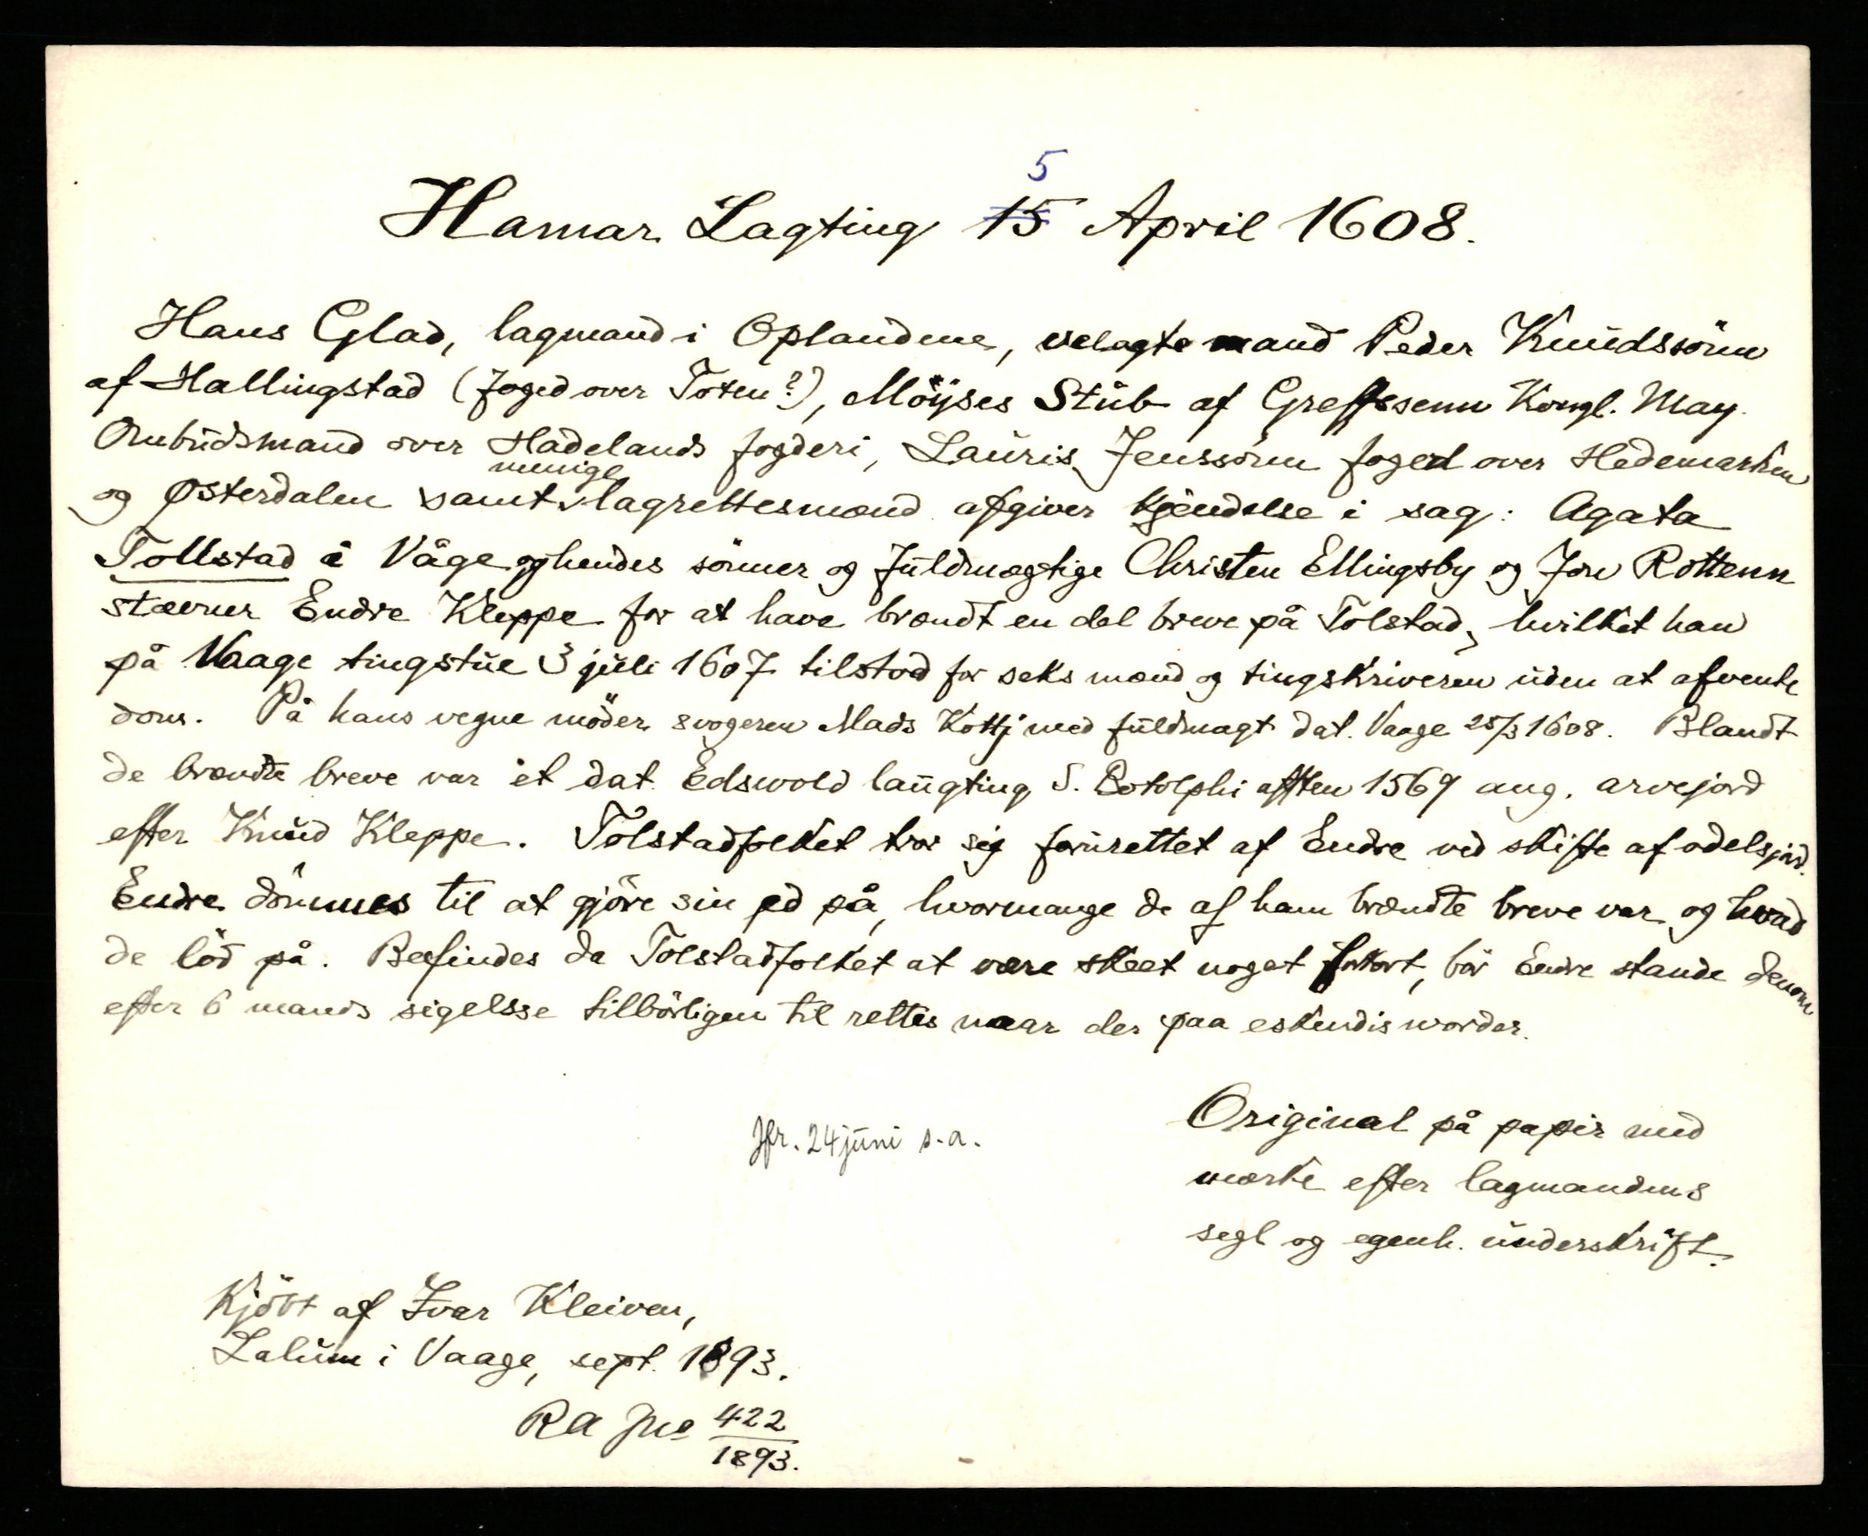 5
Hamar Lagting 15 April 1608.
Hans Glad, lagmand i Oplandene, velagte mand Peder Knudssönn
af Hallingstad (foged over Toten?), Möyses Stub af Greffssenn Kongl. May.
Ombudsmand over Hadelands fogderi, Lauris Jenssönn foged over Hedemarken
menige
og Østerdalen samt lagrettesmænd afgiver kjendelse i sag: Agata
Tollstad i Våge og hendes sönner og fuldmægtige Christen Ellingsby og Jon Rottenn
stævner Endre Kleppe for at have brændt en del breve på Tolstad, hvilket han
på Vaage tingstue 3 juli 1607 tilstod for seks mænd og tingskriveren uden at afvente
dom. På hans vegne möder svogeren Mads Kottj med fuldmagt dat. Vaage 25/3 1608. Blandt
de brændte breve var et dat. Edswold laugting S. Botolphi afften 1569 ang. arvejord
efter Knud Kleppe. Tolstadfolket tror sig forurettet af Endre ved skifte af odelsjord.
Endre dömmes til at gjöre sin ed på, hvormange de af ham brændte breve var og hvad
de löd på. Befindes da Tolstadfolket at være skeet noget forkort, bör Endre stande denom
efter 6 mands sigelsse tilbörligen til rettis naar der paa eskendis worder.
Original på papir med
mærke efter lagmandens
segl og egenh. underskrift.
Jfr. 24 juni s. a.
Kjöbt af Ivar Kleiven,
Lalum i Vaage, sept. 1893.
RA Jno 422
1893.